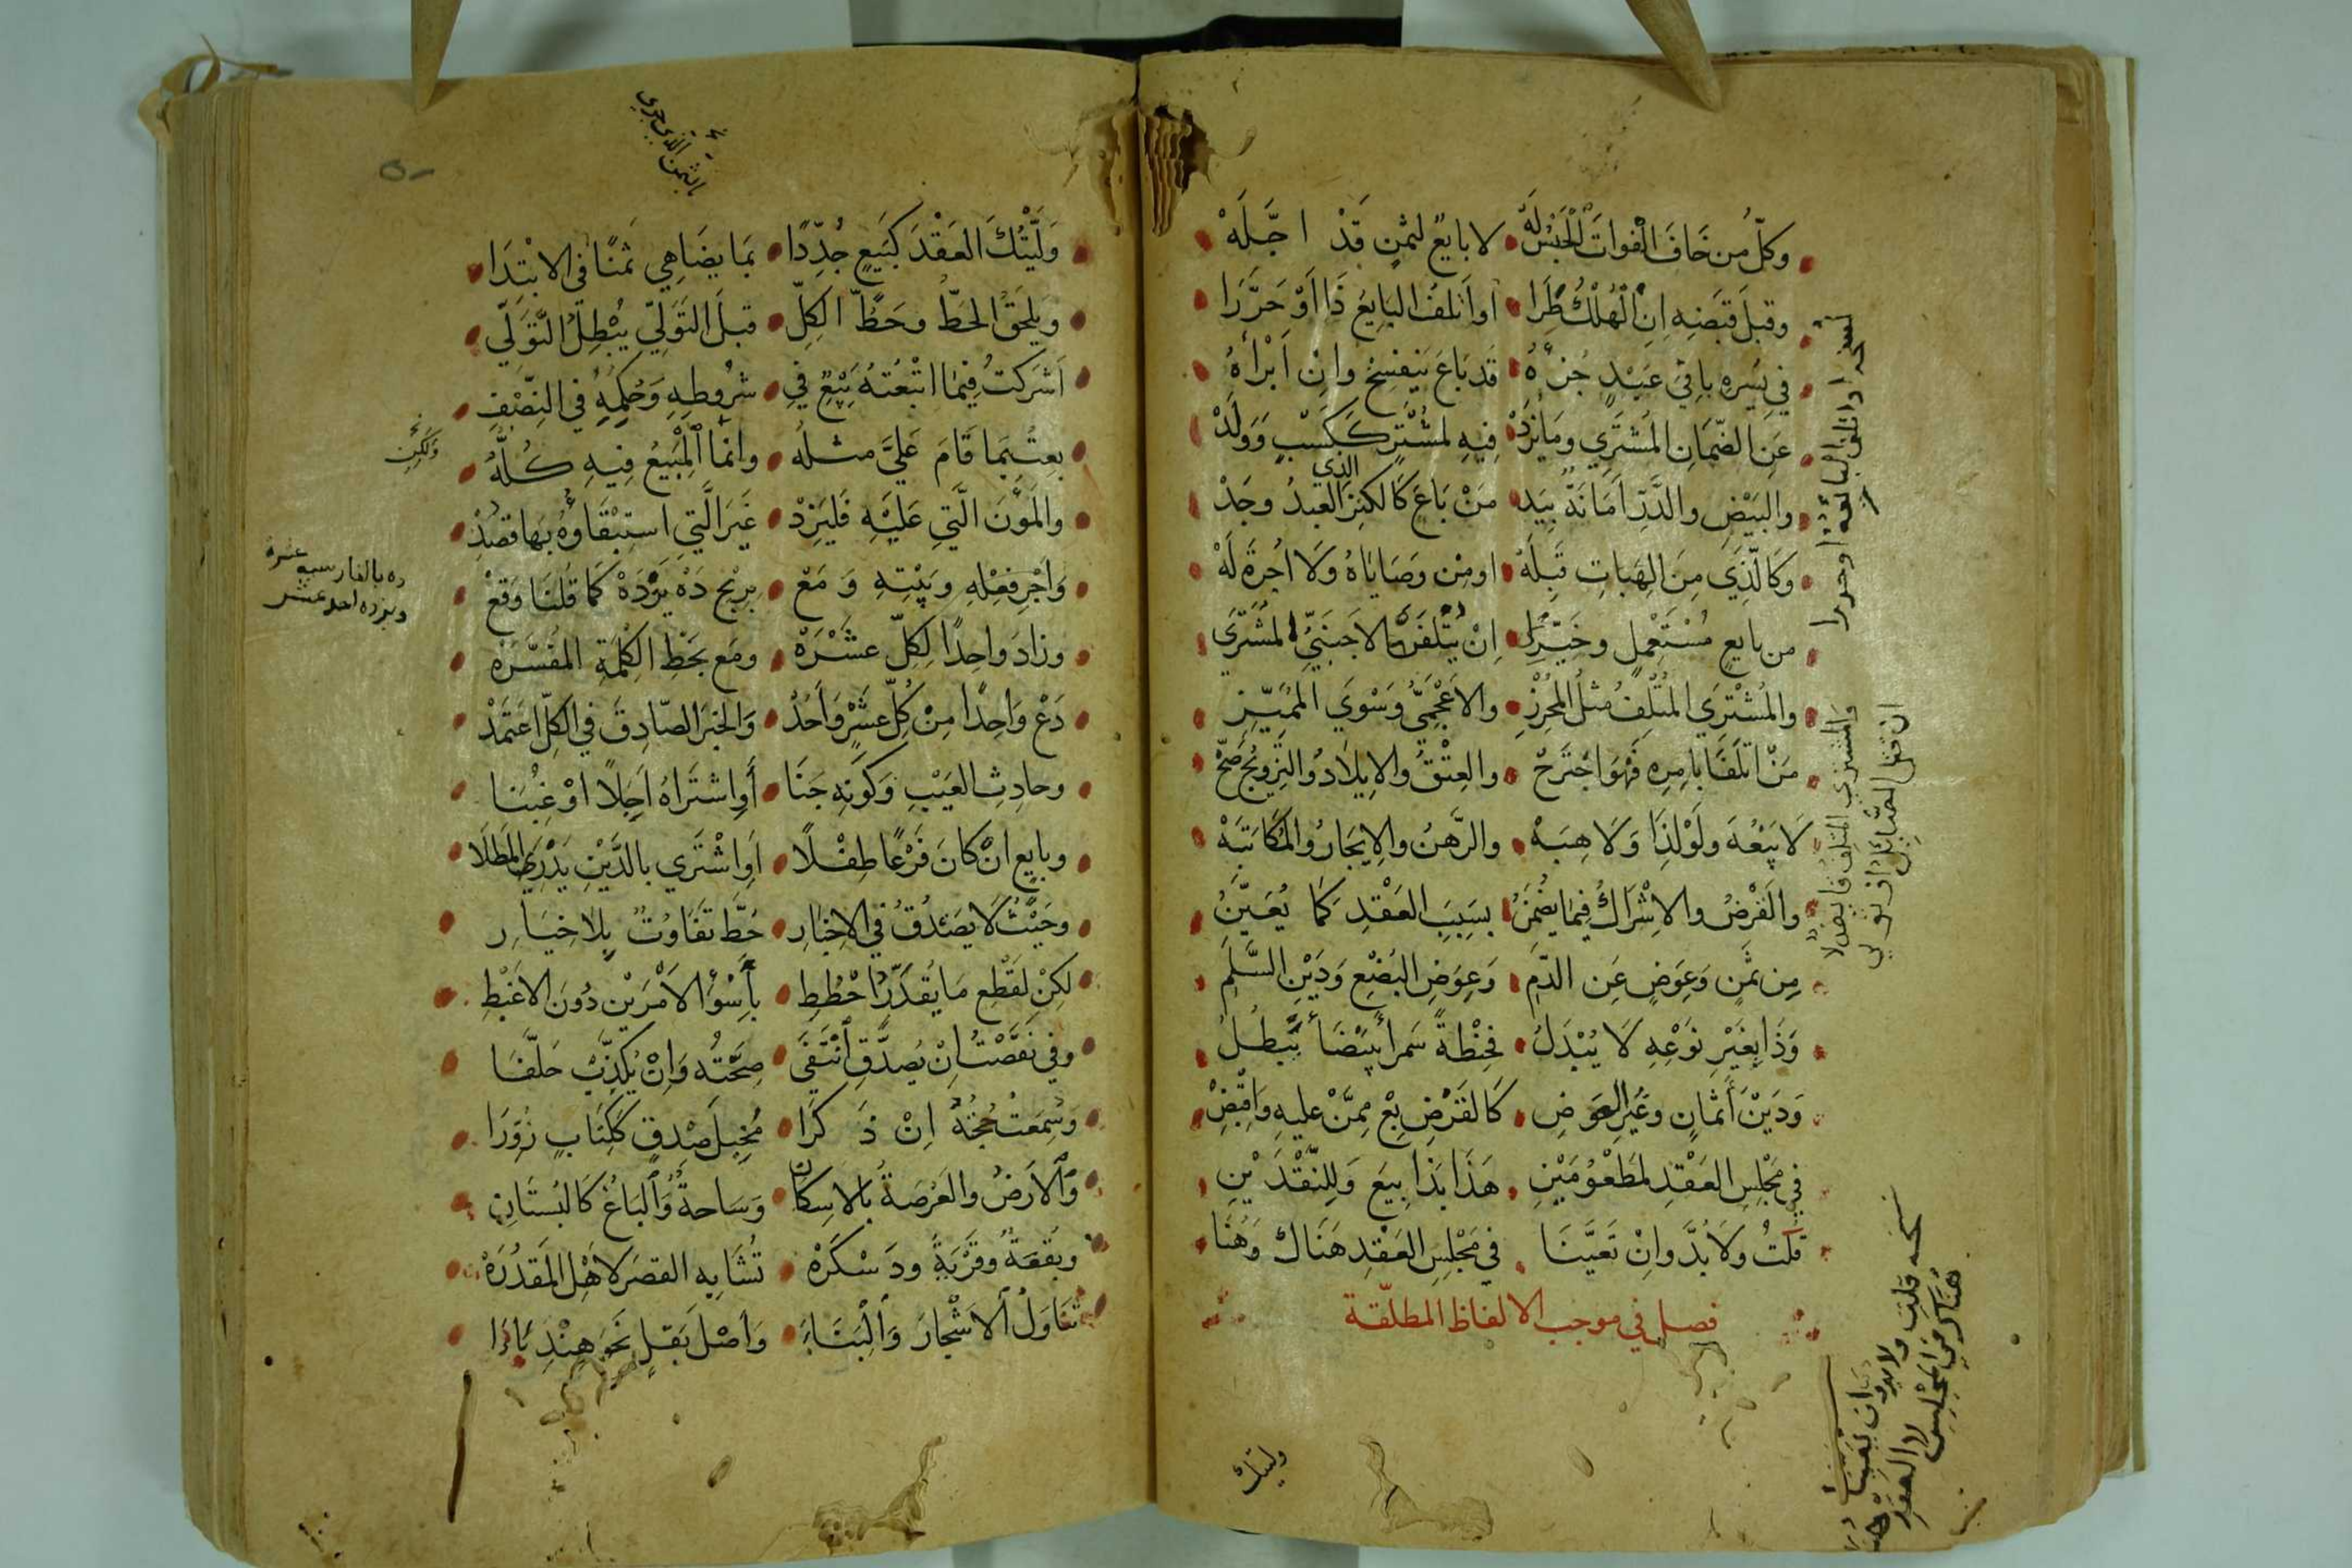 وكلّ من خاف الفوات الحبس له • لا بايع لثمن قد اجّله
وقبل قبضه ان الهلك طرا • او اتلف البايع ذا او حرّرا
في يسره باقي عبيد جزؤه • قد باع ينفسخ وان ابراه
عن الضمان المشتري وما يزد • فيه لمشتر ككسب وولد
والبيض والدّر امانة بيد • من باع كالكنز الذي العبد وجد
وكالّذي من الهبات قبله • او من وصاياه ولا اجرة له
من بايع مستعمل وخيّر • ان يتلفن الاجنبيّ المشتري
والمشتري المتلف مثل المحرز • والاعجميّ وسوي المميّز
من اتلفا بامره فهو اجترح • والعتق والايلاد والتزويج صحّ
لا بيعه ولو لذا ولا هبه • والرّهن والايجار والمكاتبه
والقرض والاشراك فيما يضمن • بسبب العقد كما يعيّن
من ثمن وعوض عن الدّم • وعوض البضع ودين السّلم
وذا بغير نوعه لا يبدل • فحنطة سمرا ببيضا تبطل
ودين أثمان وغير العوض • كالقرض بع ممّن عليه واقبض
في مجلس العقد لمطعومين • هذا بذا بيع وللنّقدين
قلت ولا بدّ وان تعيّنا • في مجلس العقد هناك وهنا
فصل في موجب الالفاظ المطلقة
نسخه او اتلف البائعه او حررا
والمشتري المتلف قابض لا
ان قتل الصّائل
نسخه قلت ولا بد وان تعينا
هناك في المجلس لا العقد هنا
وليتك
بالثمن الذي جرى
وليّتك العقد كبيع جدّدا • بما يضاهي ثمنا في الابتدا
ويلحق الحطّ وحطّ الكلّ • قبل التولي يبطل التّولّي
اشركت فيما ابتعته بيع في • شروطه وحكمه في النّصف
بعت بما قام عليّ مثله • وانما المبيع فيه كلّه
ولكن
والمؤن الّتي عليه فليزد • غير الّتي استبقاؤه بها قصد
واجر فعله وبيته ومع • بربح ده يزده كما قلنا وقع
ده بالفارسيه عشرة
ويزده احد عشر
وزاد واحدا لكلّ عشره • ومع بحطّ الكلمة المفسّره
دع واحدا من كلّ عشر واحد • والخبر الصّادق في الكلّ اعتمد
وحادث العيب وكونه جنا • أو اشتراه اجلا او غبنا
وبايع ان كان فرعا طفلا • او اشتري بالدّين يدري المطلا
وحيث لا يصدق في الاخبار • حطّ تفاوت بلا خيار
لكن لقطع ما يقدّر احطط • بأسوأ الامرين دون الاغبط
وفي نقصت ان يصدّق انتفى • صحّته وان يكذّب حلّفا
وسمعت حجّته ان ذكرا • مخيل صدق ككتاب زوّرا
والارض والعرصة بالاسكان • وساحة والباغ كالبستان
وبقعة وقرية ودسكره • تشابه القصر لاهل المقدره
تناول الاشجار والبناء • واصل بقل نحو هندباءا